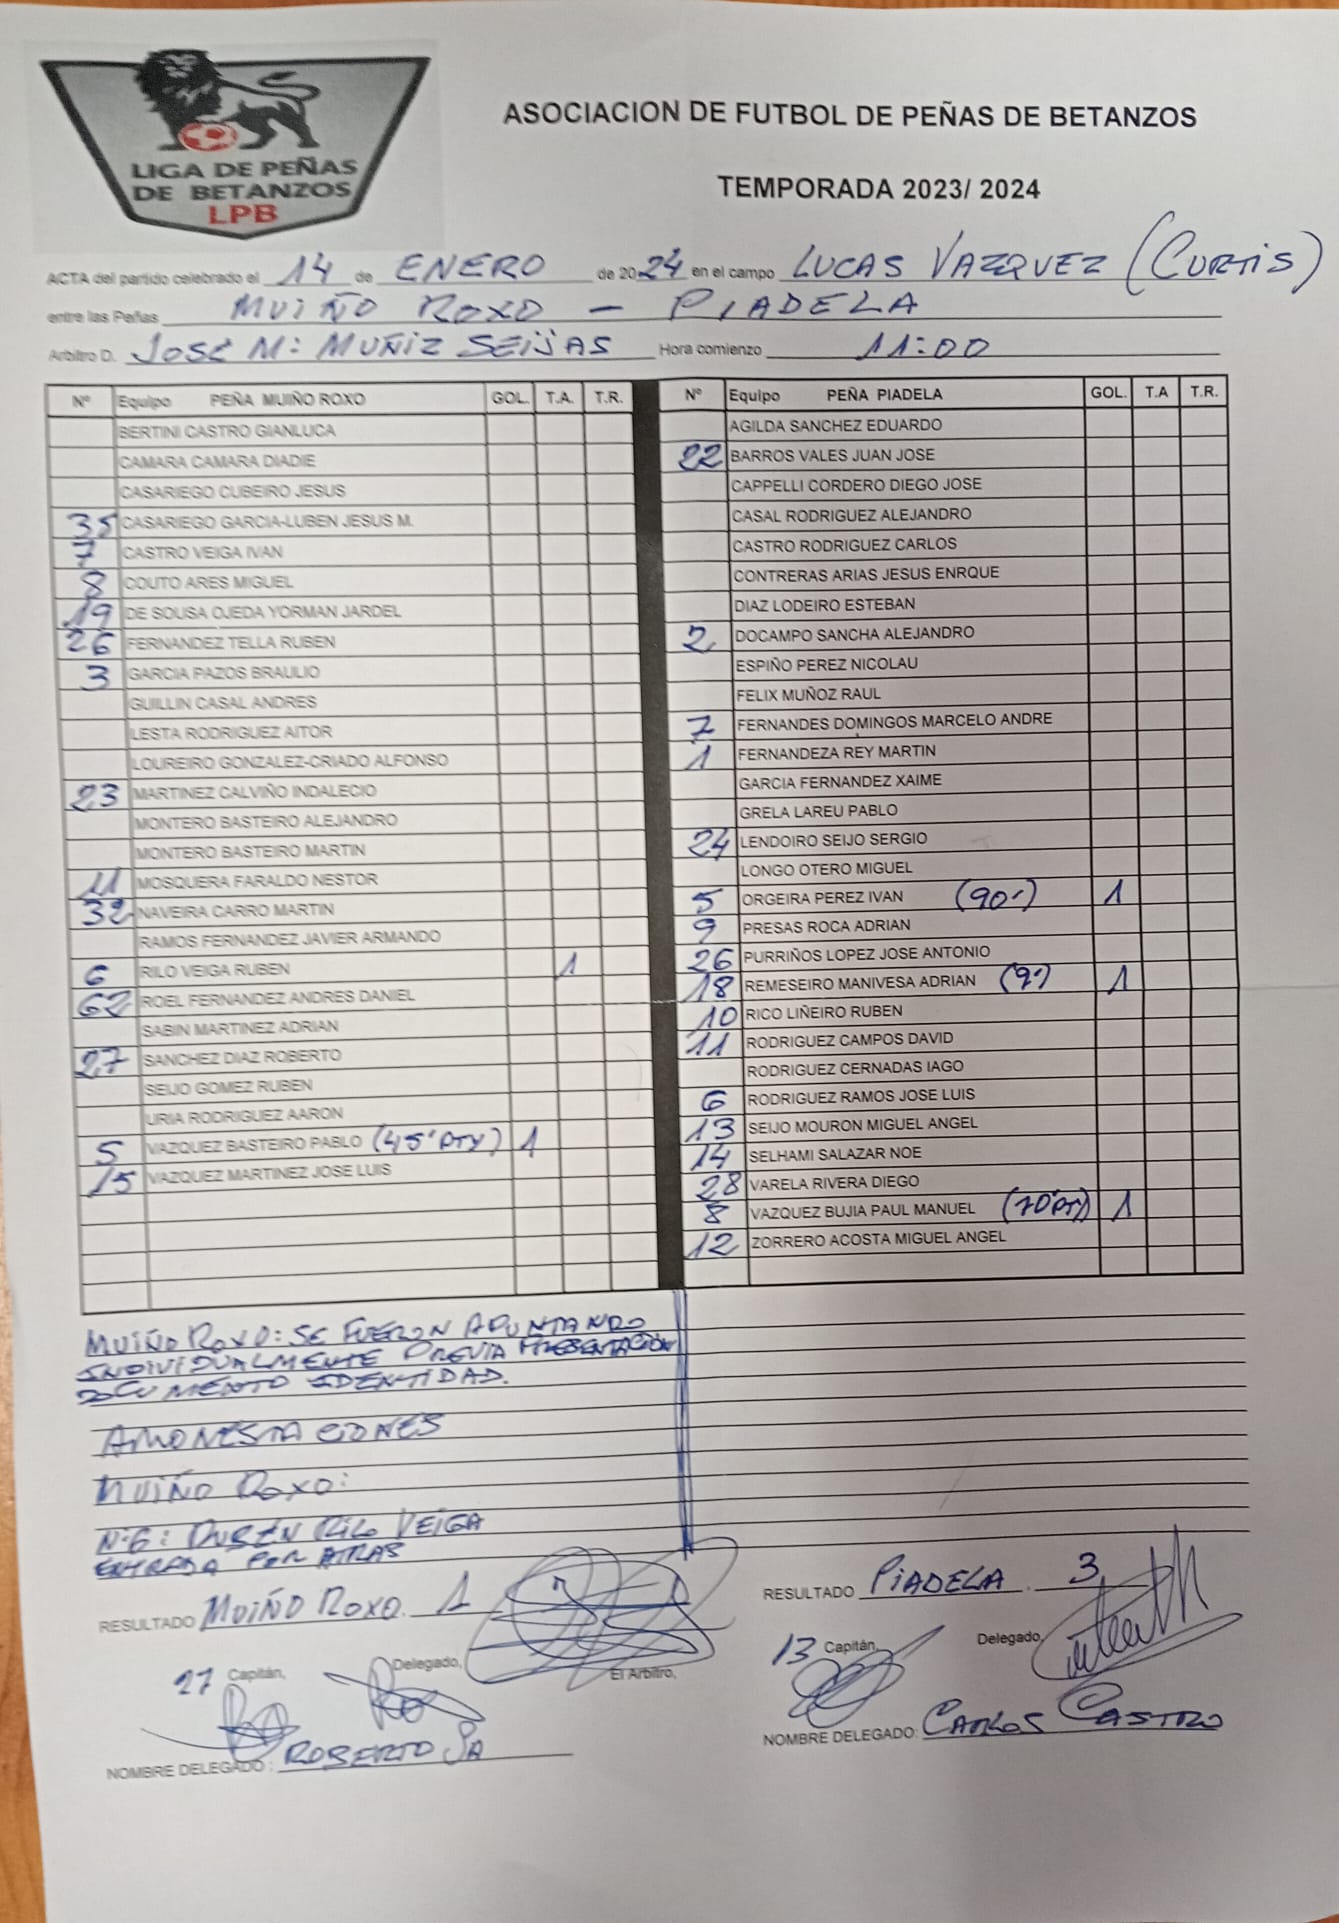 LIGA DE PEÑAS
DE BETANZOS
LPB
ASOCIACION DE FUTBOL DE PEÑAS DE BETANZOS
TEMPORADA 2023/ 2024
ACTA del partido celebrado el 14 de ENERO de 2024 en el campo LUCAS VAZQUEZ (CURTIS)
entre las Peñas MUIÑO ROXO - PIADELA
Arbitro D. JOSÉ M: MUÑIZ SEIJAS Hora comienzo 11:00
Nº Equipo PEÑA MUIÑO ROXO GOL. T.A. T.R.
BERTINI CASTRO GIANLUCA
CAMARA CAMARA DIADIE
CASARIEGO CUBEIRO JESUS
35 CASARIEGO GARCIA-LUBEN JESUS M.
7 CASTRO VEIGA IVAN
8 COUTO ARES MIGUEL
19 DE SOUSA OJEDA YORMAN JARDEL
26 FERNANDEZ TELLA RUBEN
3 GARCIA PAZOS BRAULIO
GUILLIN CASAL ANDRES
LESTA RODRIGUEZ AITOR
LOUREIRO GONZALEZ-CRIADO ALFONSO
23 MARTINEZ CALVIÑO INDALECIO
MONTERO BASTEIRO ALEJANDRO
MONTERO BASTEIRO MARTIN
11 MOSQUERA FARALDO NESTOR
32 NAVEIRA CARRO MARTIN
RAMOS FERNANDEZ JAVIER ARMANDO
6 RILO VEIGA RUBEN 1
62 ROEL FERNANDEZ ANDRES DANIEL
SABIN MARTINEZ ADRIAN
27 SANCHEZ DIAZ ROBERTO
SEIJO GOMEZ RUBEN
URIA RODRIGUEZ AARON
5 VAZQUEZ BASTEIRO PABLO (45' PTY) 1
15 VAZQUEZ MARTINEZ JOSE LUIS
Nº Equipo PEÑA PIADELA GOL. T.A T.R.
AGILDA SANCHEZ EDUARDO
22 BARROS VALES JUAN JOSE
CAPPELLI CORDERO DIEGO JOSE
CASAL RODRIGUEZ ALEJANDRO
CASTRO RODRIGUEZ CARLOS
CONTRERAS ARIAS JESUS ENRQUE
DIAZ LODEIRO ESTEBAN
2 DOCAMPO SANCHA ALEJANDRO
ESPIÑO PEREZ NICOLAU
FELIX MUÑOZ RAUL
7 FERNANDES DOMINGOS MARCELO ANDRE
1 FERNANDEZA REY MARTIN
GARCIA FERNANDEZ XAIME
GRELA LAREU PABLO
24 LENDOIRO SEIJO SERGIO
LONGO OTERO MIGUEL
5 ORGEIRA PEREZ IVAN (90') 1
9 PRESAS ROCA ADRIAN
26 PURRIÑOS LOPEZ JOSE ANTONIO
18 REMESEIRO MANIVESA ADRIAN (9') 1
10 RICO LIÑEIRO RUBEN
11 RODRIGUEZ CAMPOS DAVID
RODRIGUEZ CERNADAS IAGO
6 RODRIGUEZ RAMOS JOSE LUIS
13 SEIJO MOURON MIGUEL ANGEL
14 SELHAMI SALAZAR NOE
28 VARELA RIVERA DIEGO
8 VAZQUEZ BUJIA PAUL MANUEL (70' PTY) 1
12 ZORRERO ACOSTA MIGUEL ANGEL
MUIÑO ROXO: SE FUERON APUNTANDO
INDIVIDUALMENTE PREVIA PRESENTACIÓN
DOCUMENTO IDENTIDAD.
AMONESTACIONES
MUIÑO ROXO:
Nº6: RUBÉN RILO VEIGA
ENTRADA POR ATRAS
RESULTADO MUIÑO ROXO. 1
RESULTADO PIADELA 3
27 Capitán, Delegado, El Arbitro,
13 Capitán, Delegado,
NOMBRE DELEGADO : ROBERTO SA
NOMBRE DELEGADO: CARLOS CASTRO